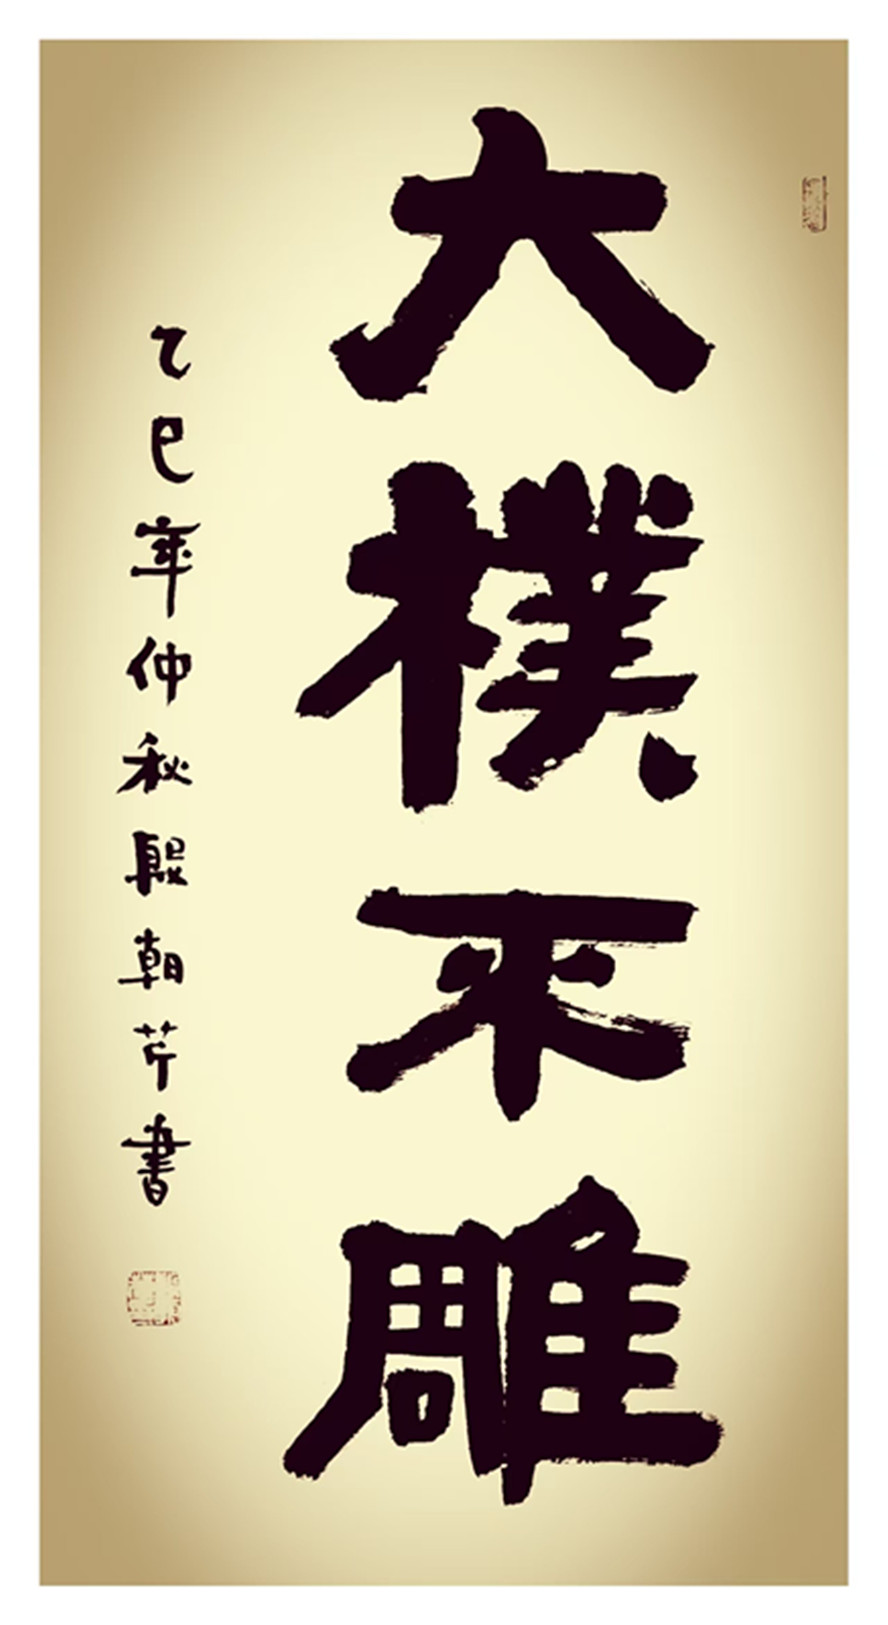 大樸不雕
乙巳年仲秋殷朝芹書